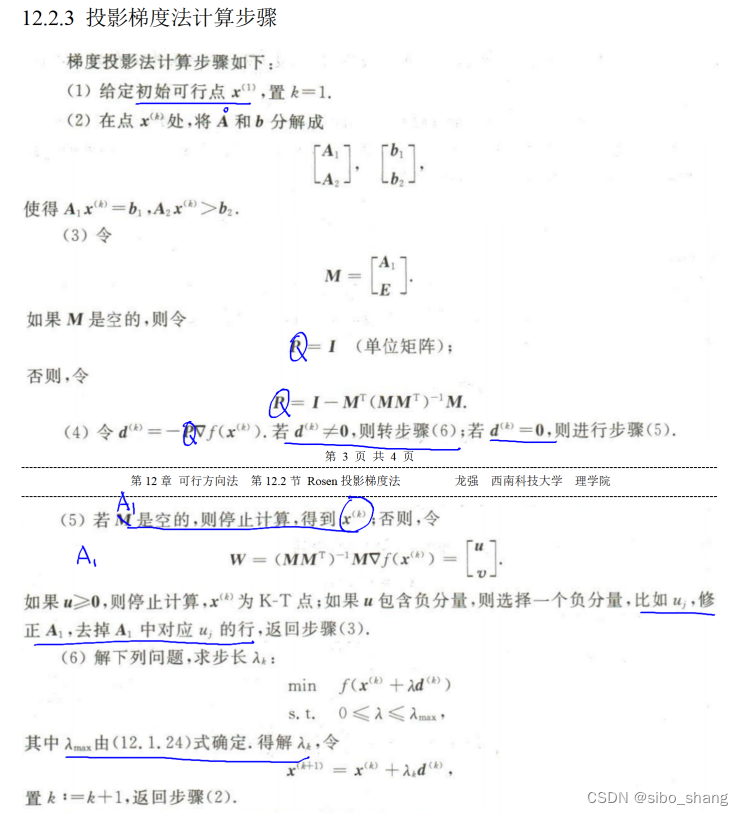 12.2.3 投影梯度法计算步骤
梯度投影法计算步骤如下:
(1) 给定初始可行点 x⁽¹⁾,置 k=1.
(2) 在点 x⁽ᵏ⁾处,将 A 和 b 分解成
[A₁ A₂], [b₁ b₂],
使得 A₁x⁽ᵏ⁾=b₁,A₂x⁽ᵏ⁾>b₂.
(3) 令
M = [A₁ E].
如果 M 是空的,则令
Q = I (单位矩阵);
否则,令
Q = I − Mᵀ(MMᵀ)⁻¹M.
(4) 令 d⁽ᵏ⁾=−Q∇f(x⁽ᵏ⁾). 若 d⁽ᵏ⁾≠0,则转步骤(6);若 d⁽ᵏ⁾=0,则进行步骤(5).
第 3 页 共 4 页
第 12 章 可行方向法 第 12.2 节 Rosen 投影梯度法 龙强 西南科技大学 理学院
A₁
(5) 若 M 是空的,则停止计算,得到 x⁽ᵏ⁾;否则,令
A₁
W = (MMᵀ)⁻¹M∇f(x⁽ᵏ⁾) = [u v].
如果 u⩾0,则停止计算,x⁽ᵏ⁾为 K-T 点;如果 u 包含负分量,则选择一个负分量,比如 uⱼ,修
正 A₁,去掉 A₁ 中对应 uⱼ 的行,返回步骤(3).
(6) 解下列问题,求步长 λₖ:
min f(x⁽ᵏ⁾+λd⁽ᵏ⁾)
s. t. 0⩽λ⩽λmax,
其中 λmax由(12.1.24)式确定. 得解 λₖ,令
x⁽ᵏ⁺¹⁾ = x⁽ᵏ⁾+λₖd⁽ᵏ⁾,
置 k:=k+1,返回步骤(2).
CSDN @sibo_shang